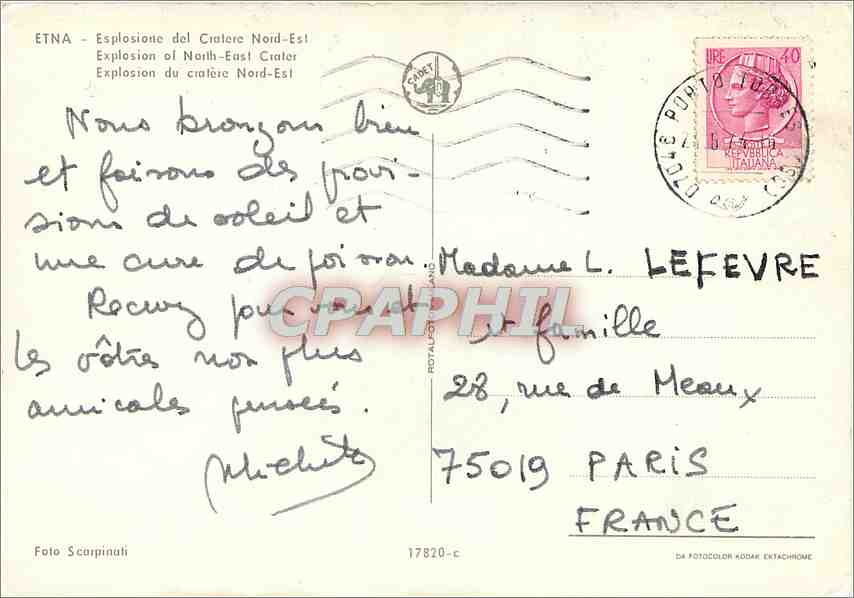 ETNA - Esplosione del Cratere Nord-Est
Explosion of North-East Crater
Explosion du cratère Nord-Est
CADET
LIRE 40
POSTE
REPVBBLICA
ITALIANA
07046 PORTO TORRES
Nous bronzons bien
et faisons des provi-
sions de soleil et
une cure de poisson.
Recevez pour vous et
les vôtres nos plus
amicales pensées.
Madame L. LEFEVRE
et famille
28, rue de Meaux
75019 PARIS
FRANCE
CPAPHIL
Foto Scarpinati
17820-c
DA FOTOCOLOR KODAK EKTACHROME